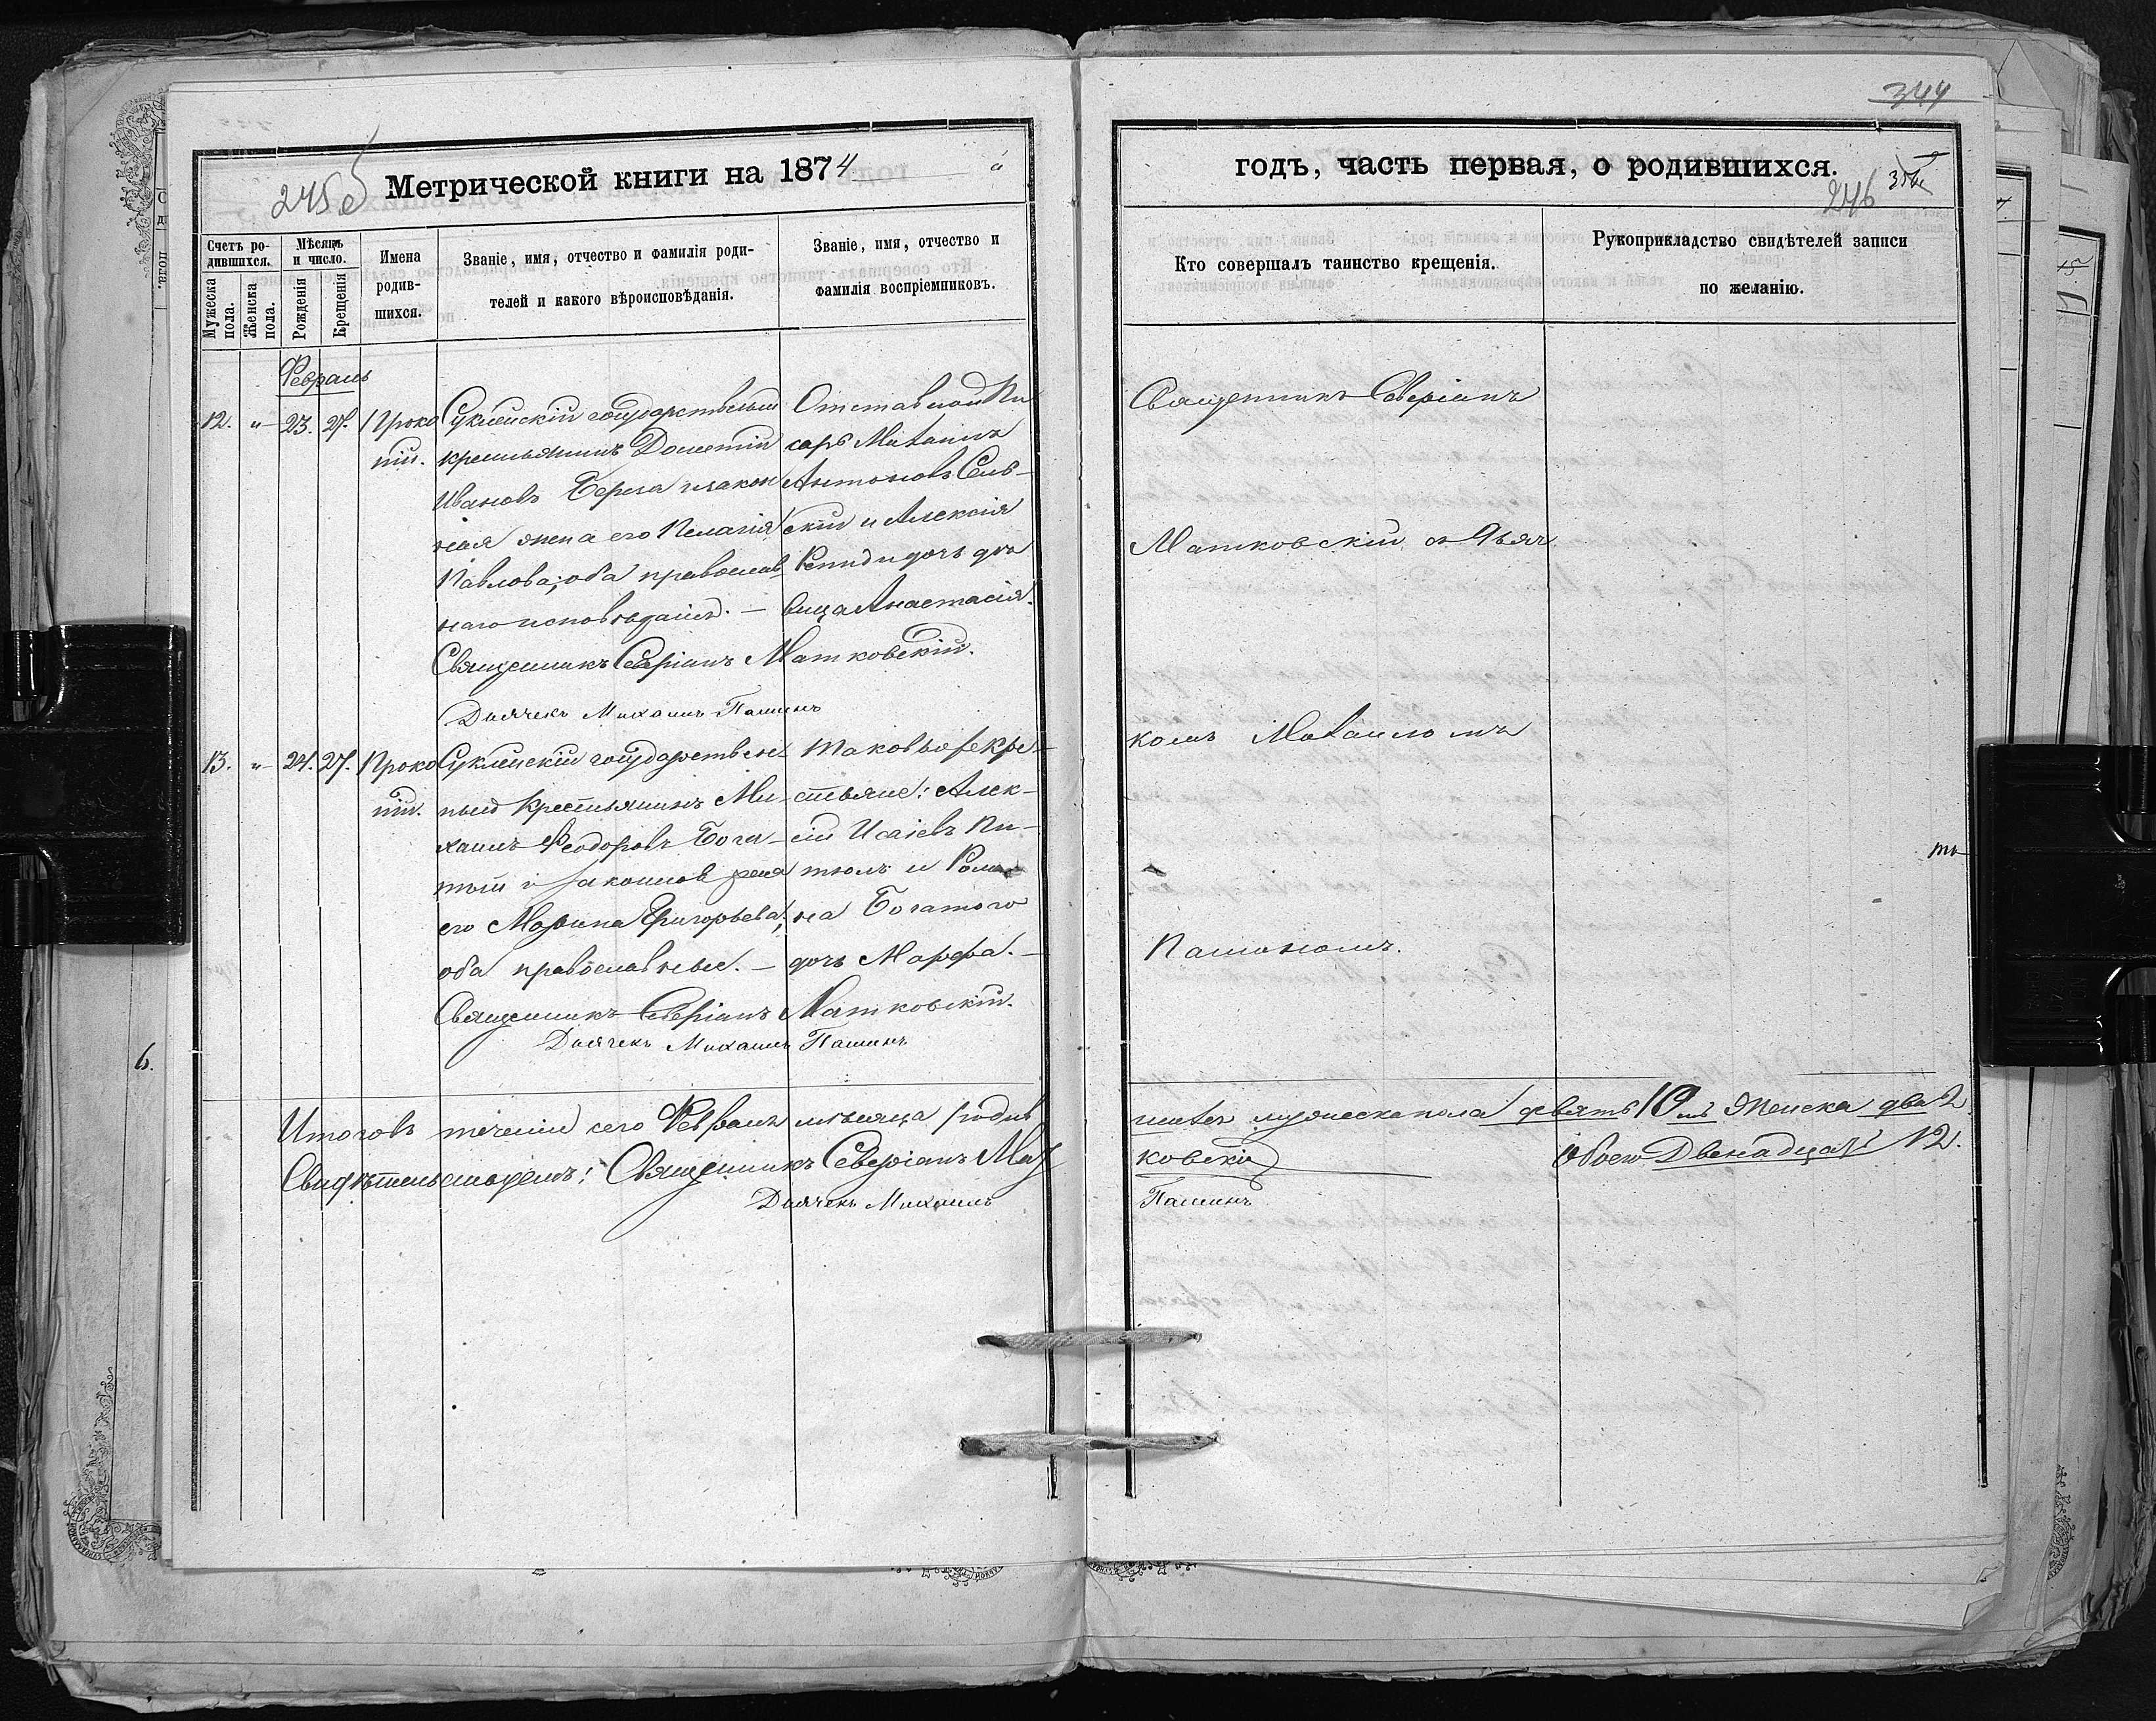 344
245 б
Метрической книги на 1874
годъ, часть первая, о родившихся.
246
Счетъ ро-
дившихся.
Мужеска
пола.
Женска
пола.
Мѣсяцъ
и число.
Рожденія
Крещенія
Имена
родив-
шихся.
Званіе, имя, отчество и фамилія роди-
телей и какого вѣроисповѣданія.
Званіе, имя, отчество и
фамилія воспріемниковъ.
Кто совершалъ таинство крещенія.
Рукоприкладство свидѣтелей записи
по желанію.
Февраль
12. " 23. 27. Проко
пій.
Суклейскій государственый
крестьянинъ Дометій
Ивановъ и закон
ная жена его Пелагія
Павлова; оба православ
наго исповѣданія. —
Отставной Пи
сарь Михаилъ
Антоновъ Сель-
скій и Алексія
дочь дѣ
вица Анастасія.
Священникъ Северіанъ Матковскій.
Дьячекъ Михаилъ Пашинъ
13. " 24. 27. Проко
пій.
Суклейскій государствен
ный Крестьянинъ Ми-
хаилъ Феодоровъ Бога-
тый и законнов жена
его Марина Григорьева;
оба православные. —
таковые же кре-
стьяне: Алек-
сій Исаіевъ
и Рома
на Богатого
дочь Марфа. —
Священникъ Северіанъ Матковскій.
Дьячекъ Михаилъ Пашинъ
Священникъ Северіанъ
Матковскій съ Дьяч
комъ Михаиломъ
Пашиномъ.
Итого въ теченіи сего Февраля мѣсяца родив
шихся мужеска пола десять 10 ть Женска два 2
Свидѣтельствуемъ: Священникъ Северіанъ Мат
ковскій
Обоего Двенадцать 12.
Дьячекъ Михаилъ
Пашинъ
6.